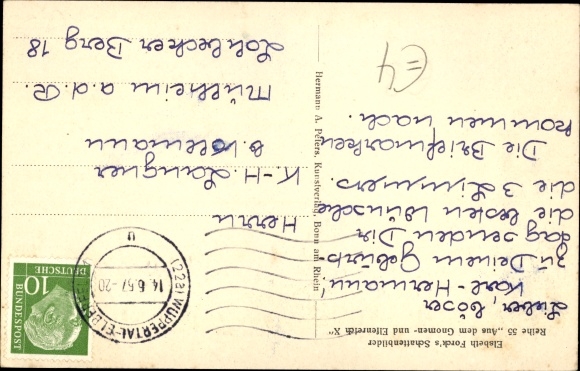 Elsbeth Forck's Schattenbilder
Reihe 55 „Aus dem Gnomen- und Elfenreich X"
Lieber, böser
Karl-Hermann!
Zu Deinem Geburts
tag senden Dir
die besten Wünsche
die 3 
Die Briefmarken
kommen nach.
€4
Hermann A. Peters, Kunstverlag, Bonn am Rhein
DEUTSCHE
BUNDESPOST
10
(22a) WUPPERTAL-ELBERFELD
14.6.57-20
u
Herrn
K-H. Langner
b. 
Mülheim a.d.R.
Lohbecker Berg 18